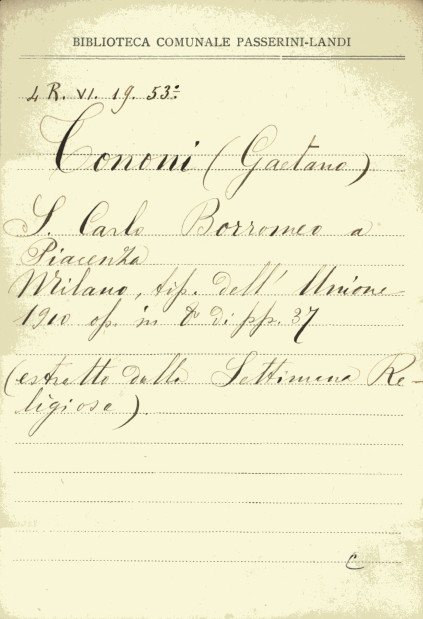 BIBLIOTECA COMUNALE PASSERINI-LANDI
4 R. VI. 19. 53º
Tononi (Gaetano)
S. Carlo Borromeo a
Piacenza
Milano, tip. dell' Unione
1910 op. in 8º di pp. 37
(estratto dalla Settimana Re-
ligiosa).
C